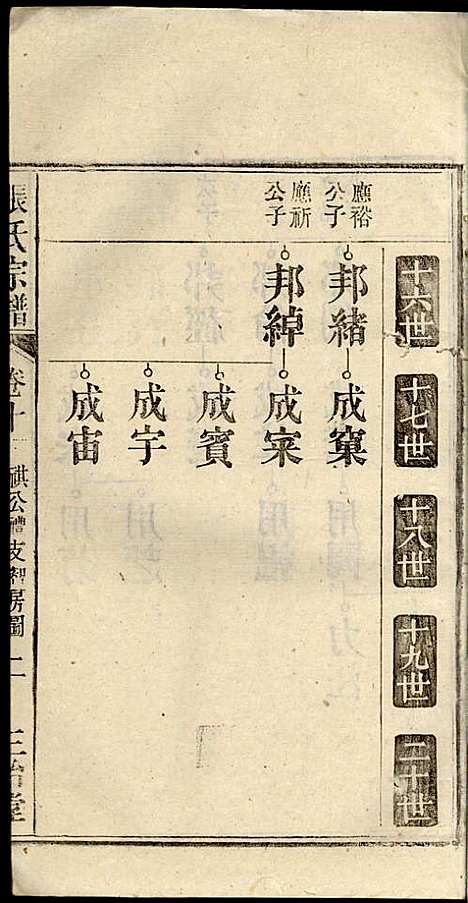 十六世
十七世
十八世
十九世
二十世
應裕公子
邦緒
成稟
應祈公子
邦綽
成寀
成賓
成宇
成宙
張氏宗譜
卷十
祺公禮支智房圖
二
三治堂